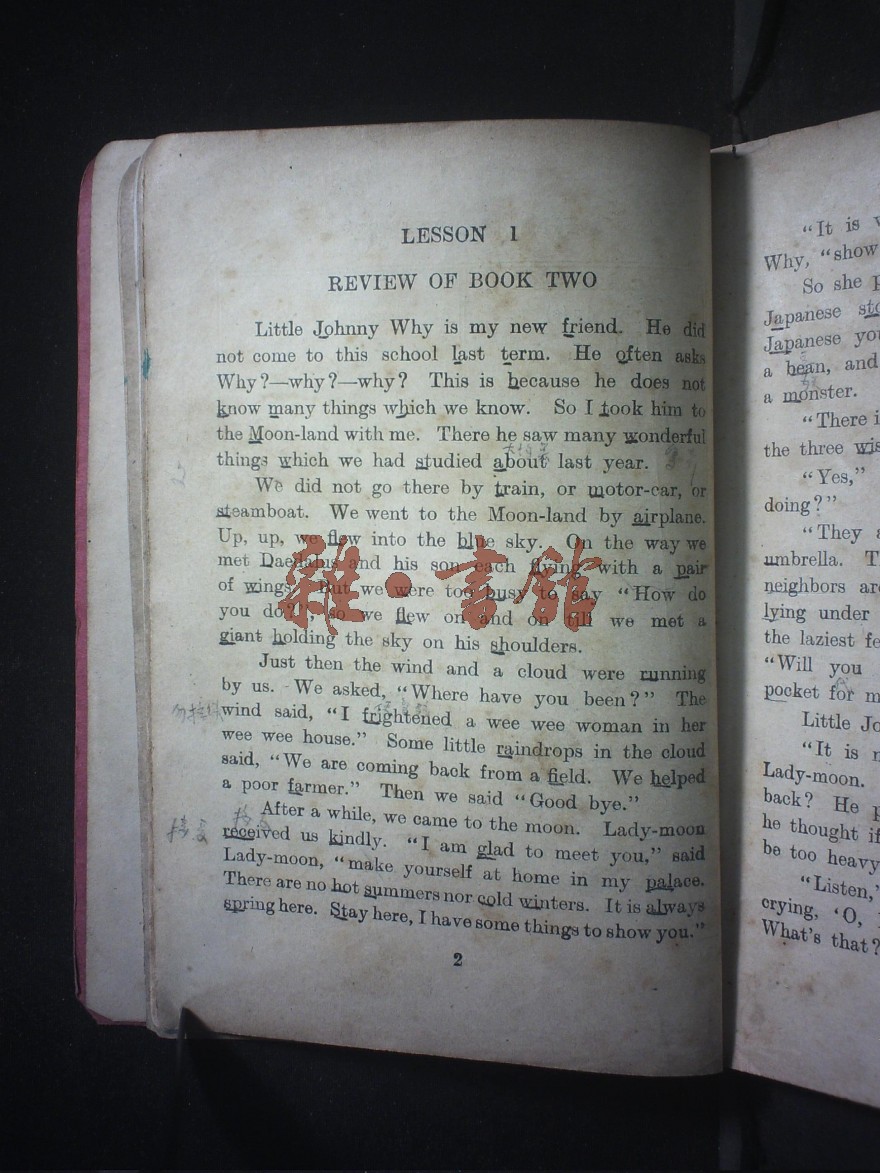 LESSON 1
REVIEW OF BOOK TWO
Little Johnny Why is my new friend. He did
not come to this school last term. He often asks
Why?—why?—why? This is because he does not
know many things which we know. So I took him to
the Moon-land with me. There he saw many wonderful
things which we had studied about last year.
We did not go there by train, or motor-car, or
steamboat. We went to the Moon-land by airplane.
Up, up, we flew into the blue sky. On the way we
met Daedalus and his son each flying with a pair
of wings. But we were too busy to say "How do
you do?", so we flew on and on till we met a
giant holding the sky on his shoulders.
Just then the wind and a cloud were running
by us. We asked, "Where have you been?" The
wind said, "I frightened a wee wee woman in her
wee wee house." Some little raindrops in the cloud
said, "We are coming back from a field. We helped
a poor farmer." Then we said "Good bye."
After a while, we came to the moon. Lady-moon
received us kindly. "I am glad to meet you," said
Lady-moon, "make yourself at home in my palace.
There are no hot summers nor cold winters. It is always
spring here. Stay here, I have some things to show you."
2
雜·書館
"It is
Why, "show
So she
Japanese
Japanese
a bean, and
a monster.
"There
the three
"Yes,"
doing?"
"They
umbrella.
neighbors
lying under
the laziest
"Will you
pocket for
Little
"It is
Lady-moon.
back? He
he thought if
be too heavy
"Listen,"
crying, 'O,
What's that?